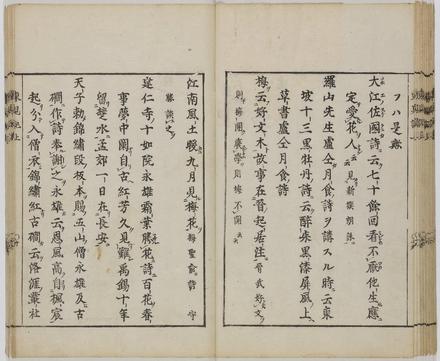 フハ是歟
大江佐國詩云七十餘回看不厭他生應
定愛花人云云見新撰朗詠
羅山先生盧仝月食詩ヲ講スル時云東
坡十三黒牡丹詩云醉来黒漆屏風上
草書盧仝月食詩
梅云好文木故事在晉起居注晉武好文
則梅開廢學則梅不開云云
江南風土暖九月見梅花梅聖俞詩守
勝談之
建仁寺十如院永雄霜葉勝花詩百花春
事夢中闌自古紅芳久見難禹錫十年
留楚水孟郊一日在長安
天子勅錦繍段板本賜五山僧永雄及古
磵作詩奉謝之永雄云恩風高自楓宸
起分入僧家錦繍紅古磵云洛涯叢社